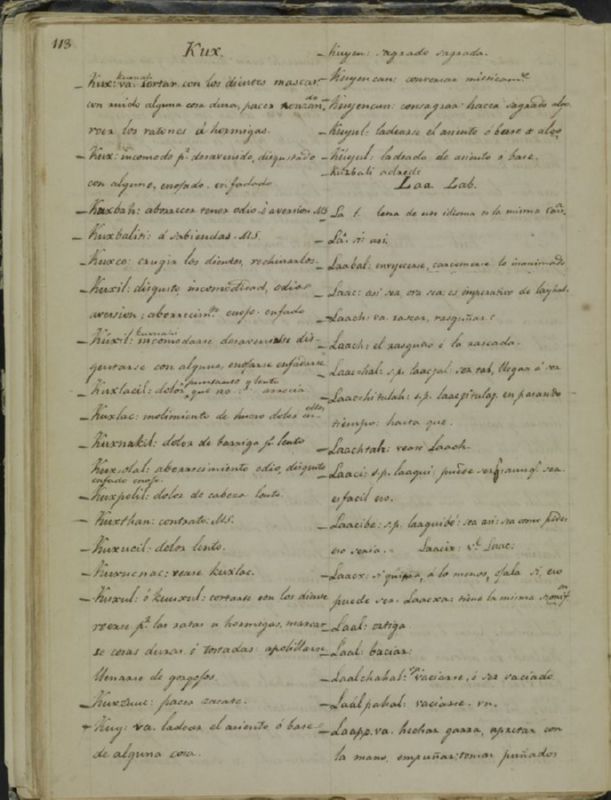 113
Kux.
– Kux: va. cortar con los dientes mascar
kuxnahi
con ruido alguna cosa dura, pacer
roer los ratones ó hormigas.
– Kux: incomodo pr. desavenido, disgustado
con alguno, enojado. enfadado
– Kuxbah: aborrecer tener odio ó aversion. MS
– Kuxbaliti: á sabiendas. M.S.
– Kuxco: crugir los dientes, rechinarlos.
– Kuxil: disgusto, incomodidad, odios
aversion; aborrecimto. enojo. enfado
– Kúxil: incomodarse desavenirse dis-
kuxnahi
gustarse con alguno, enojarse enfadarse
– Kuxlacil: dolor que no arrecia
punsante y lento
– Kuxlac: molimiento de hueso dolor
– Kuxnakil: dolor de barriga pr. lento
– Kuxolal: aborrecimiento odio, disgusto
enfado enojo.
– Kuxpolil: dolor de cabeza lento.
– Kuxthan: contrato. M.S.
– Kuxucil: dolor lento.
– Kuxucnac: vease kuxlac.
– Kuxul: ó kuuxul: cortarse con los dientes
roerse pr. las ratas u hormigas, mascar
se cosas duras ó tostadas: apolillarse
llenarse de gorgojos.
– Kuxzuuc: pacer zacate.
+ Kuy: va. ladear el asiento ó base
de alguna cosa.
– Kuyen: sagrado sagrada.
– Kuyencun: convenian
– Kuyencun: consagrar: hacer sagrado algo
– Kuyul: ladearse el asiento ó base de algo
– Kúyul: ladeado de asiento ó base.
– kuzbali adrede
Laa Lab.
– La l. letra de un idioma es la misma
– Lá. si asi.
– Laabal: envejecerse, carcomerse lo inanimado
– Laac: asi sea, ora sea: es imperativo de
– Laach: va. rascar, rasguñar.
– Laach: el rasguño ó la rascada.
– Laachal: s.p. laacpal: ser tal, llegar á ser
– Laachitulah: s.p. laacpitulay, en pasando
tiempo: hasta que.
– Laachtah: vease Laach
– Laaci: s.p. laaqui: puede ser aunq. sea.
es facil eso.
– Laacibe: s.p. laaquibé: sea asi: sea como fuere
eso seria. – Laacix: ve. Laac:
– Laacx: siquiera, á lo menos, ojala si, eso
puede ser. Laacxa: tiene la misma
– Laal: ortiga.
– Laal: baciar:
– Laalchahal: vaciarse, ó ser vaciado
– Laálpahal: vaciarse. vn.
– Laapp. va. hechar garra, apretar con
la mano, empuñar: tomar puñados